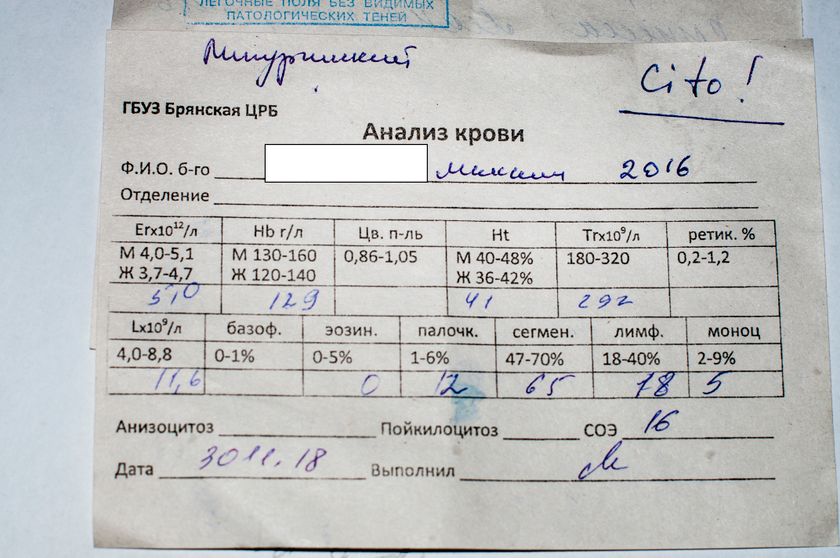 ЛЕГОЧНЫЕ ПОЛЯ БЕЗ ВИДИМЫХ
ПАТОЛОГИЧЕСКИХ ТЕНЕЙ
Cito!
ГБУЗ Брянская ЦРБ
Анализ крови
Ф.И.О. б-го 2016
Отделение
Erх10¹²/л Hb г/л Цв. п-ль Ht Trх10⁹/л ретик. %
М 4,0-5,1 М 130-160 0,86-1,05 М 40-48% 180-320 0,2-1,2
Ж 3,7-4,7 Ж 120-140 Ж 36-42%
5,0 129 41 292
Lх10⁹/л базоф. эозин. палочк. сегмен. лимф. моноц
4,0-8,8 0-1% 0-5% 1-6% 47-70% 18-40% 2-9%
11,6 0 12 65 18 5
Анизоцитоз Пойкилоцитоз СОЭ 16
Дата 30 11.18 Выполнил